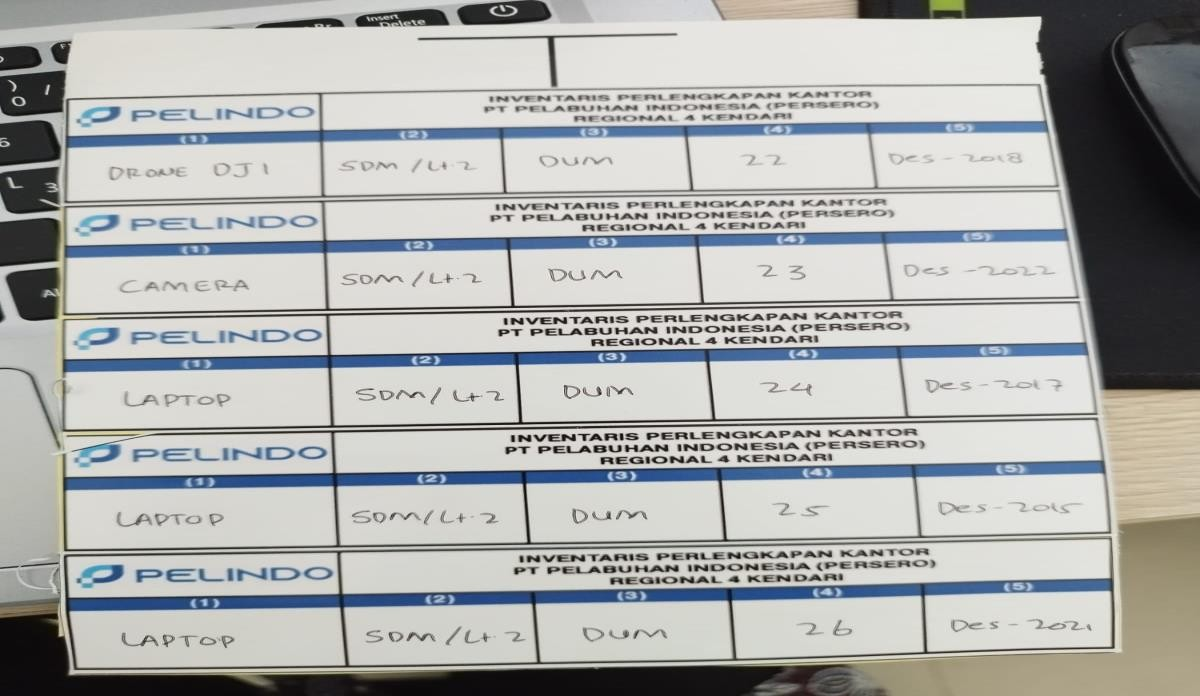 Insert
Delete
PELINDO
INVENTARIS PERLENGKAPAN KANTOR
PT PELABUHAN INDONESIA (PERSERO)
REGIONAL 4 KENDARI
(1) (2) (3) (4) (5)
DRONE DJI SDM/Lt.2 DUM 22 Des-2018
PELINDO
INVENTARIS PERLENGKAPAN KANTOR
PT PELABUHAN INDONESIA (PERSERO)
REGIONAL 4 KENDARI
(1) (2) (3) (4) (5)
CAMERA SDM/Lt.2 DUM 23 Des-2022
PELINDO
INVENTARIS PERLENGKAPAN KANTOR
PT PELABUHAN INDONESIA (PERSERO)
REGIONAL 4 KENDARI
(1) (2) (3) (4) (5)
LAPTOP SDM/Lt.2 DUM 24 Des-2017
PELINDO
INVENTARIS PERLENGKAPAN KANTOR
PT PELABUHAN INDONESIA (PERSERO)
REGIONAL 4 KENDARI
(1) (2) (3) (4) (5)
LAPTOP SDM/Lt.2 DUM 25 Des-2015
PELINDO
INVENTARIS PERLENGKAPAN KANTOR
PT PELABUHAN INDONESIA (PERSERO)
REGIONAL 4 KENDARI
(1) (2) (3) (4) (5)
LAPTOP SDM/Lt.2 DUM 26 Des-2021